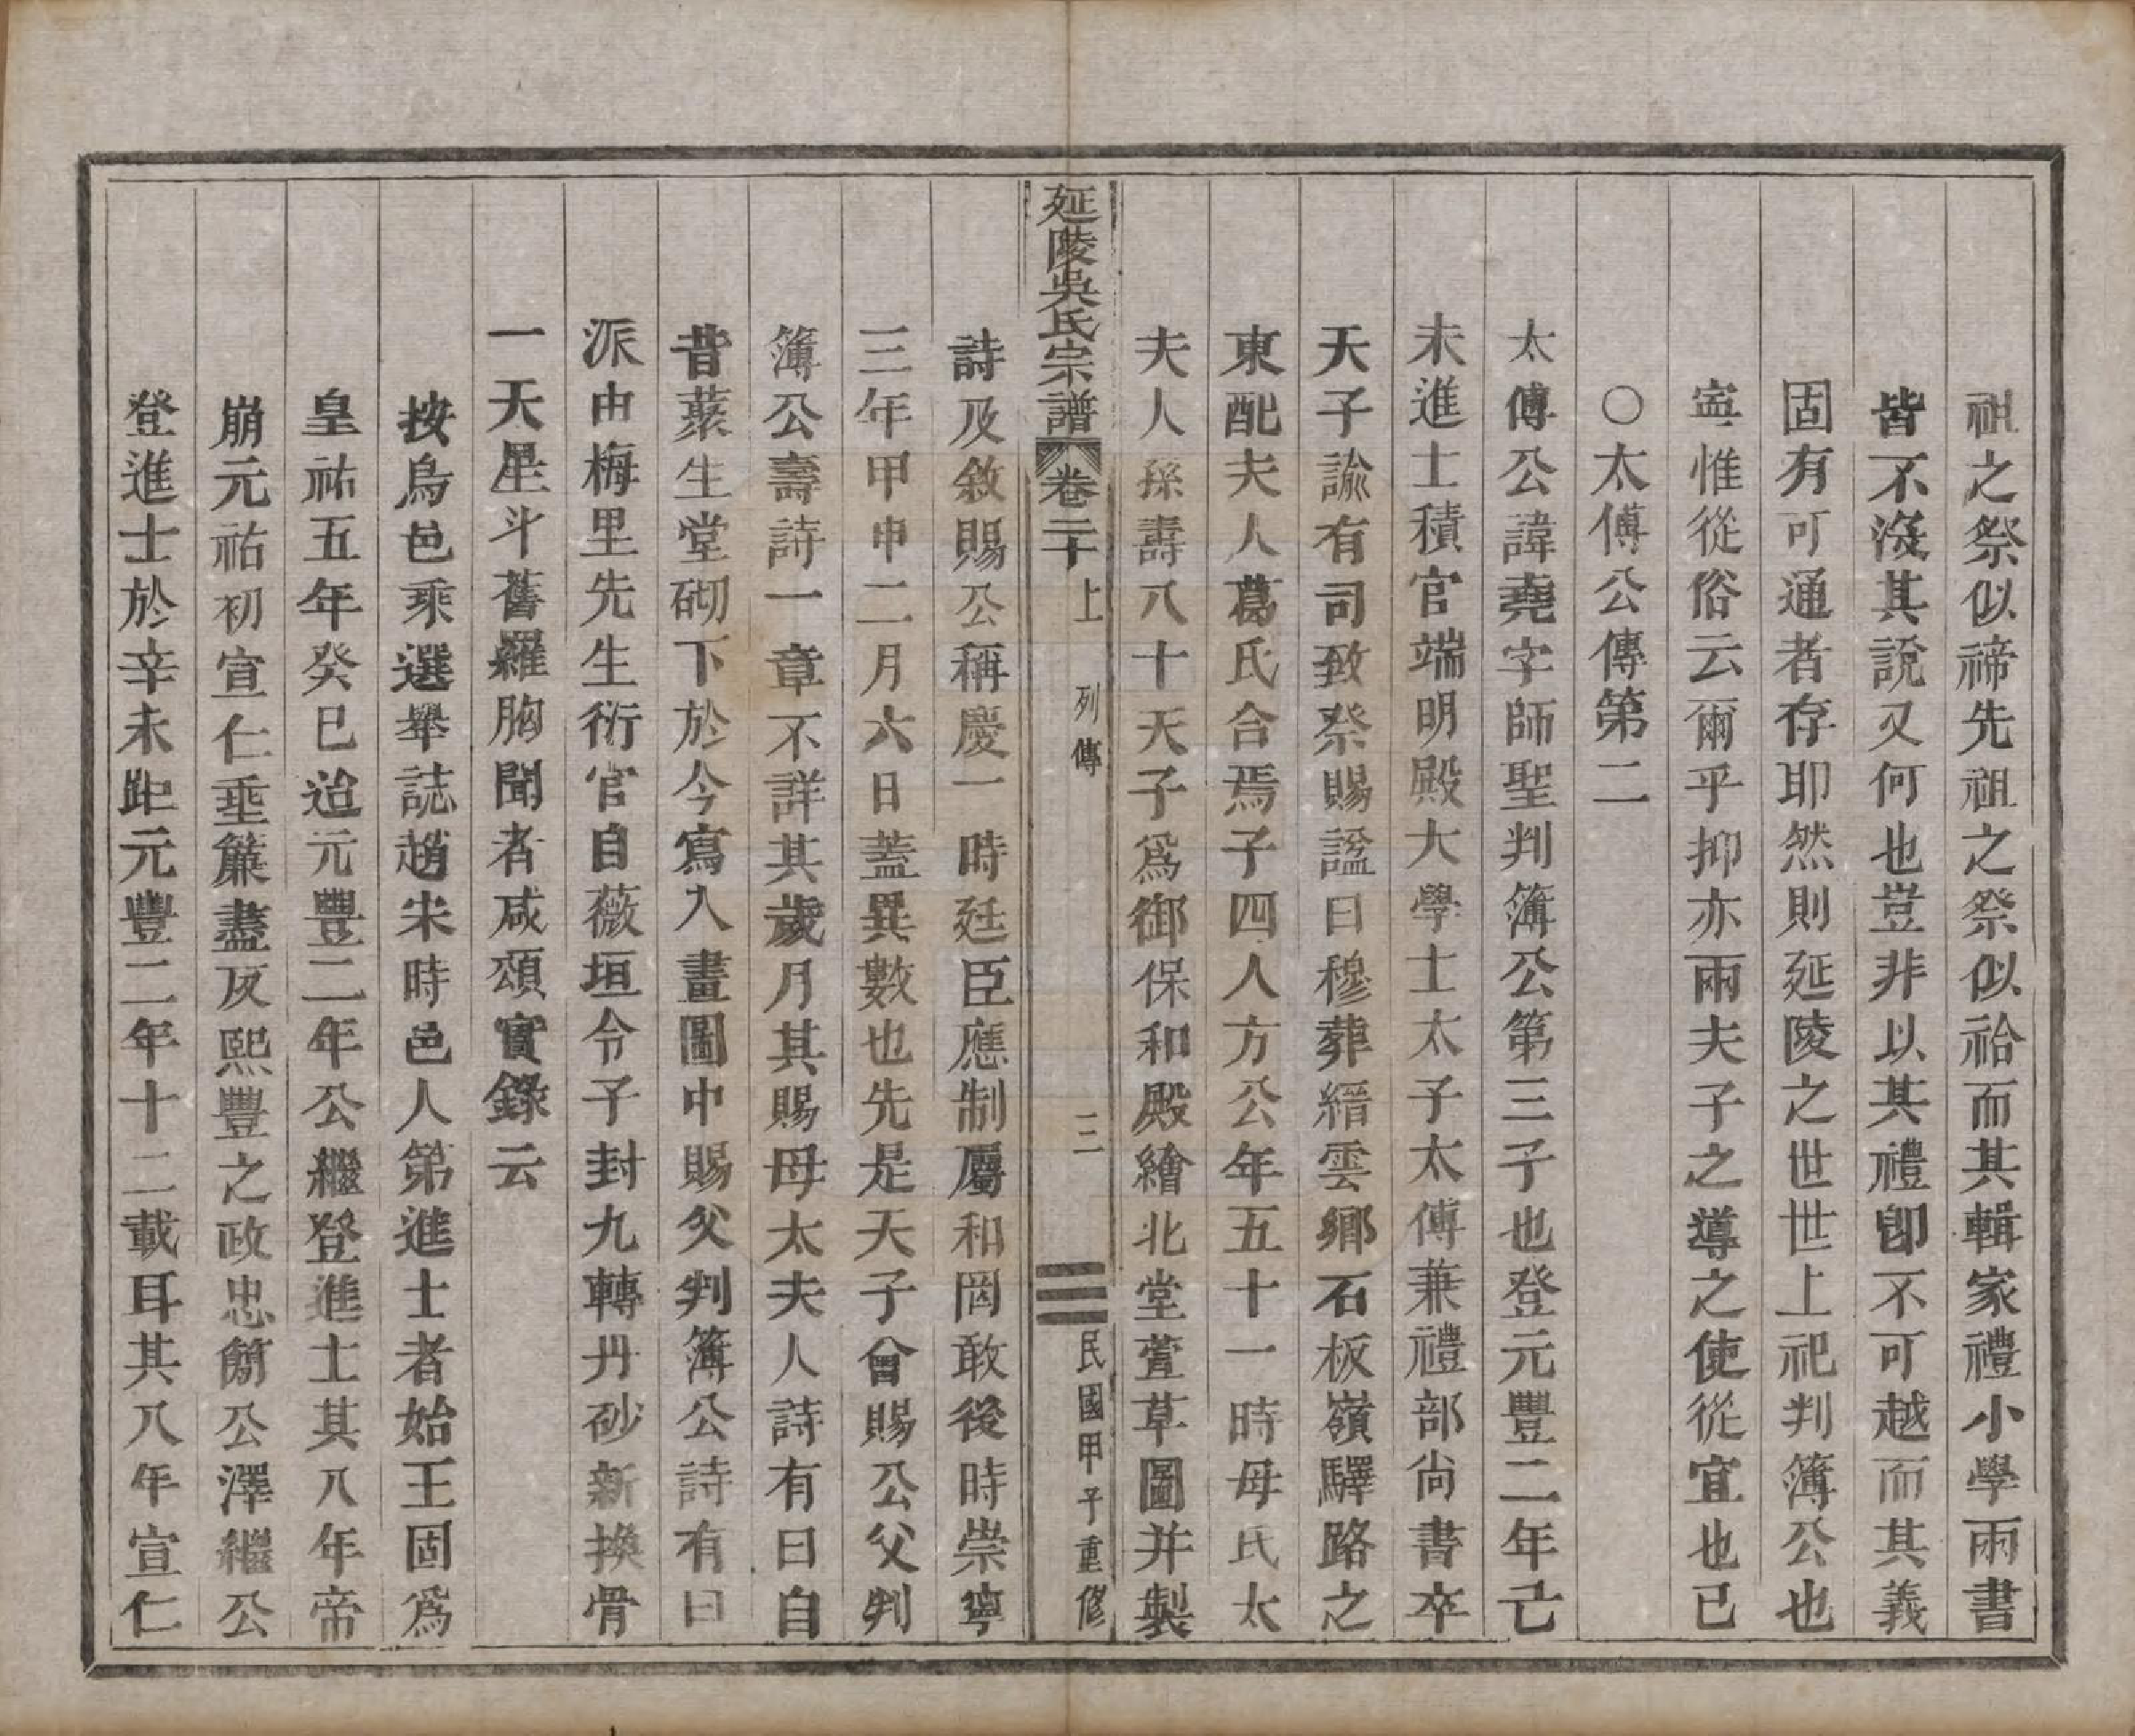 祖之祭似禘先祖之祭似祫而其輯家禮小學兩書
皆不沒其說又何也豈非以其禮卽不可越而其義
固有可通者存耶然則延陵之世世上祀判簿公也
寍惟從俗云爾乎抑亦兩夫子之導之使從宜也已
○太傅公傳第二
太傅公諱堯字師聖判簿公第三子也登元豐二年己
未進士積官端明殿大學士太子太傅兼禮部尚書卒
天子諭有司致祭賜諡曰穆葬縉雲鄉石板嶺驛路之
東配夫人葛氏合焉子四人方公年五十一時母氏太
夫人孫壽八十天子爲御保和殿繪北堂萱草圖并製
延陵吳氏宗譜 卷二十上 列傳 三 民國甲子重修
詩及敘賜公稱慶一時廷臣應制屬和罔敢後時崇寧
三年甲申二月六日蓋異數也先是天子曾賜公父判
簿公壽詩一章不詳其歲月其賜母太夫人詩有曰自
昔蘂生堂砌下於今寫入畫圖中賜父判簿公詩有曰
派由梅里先生衍官自薇垣令子封九轉丹砂新換骨
一天星斗舊羅胸聞者咸頌實錄云
按烏邑乘選舉誌趙宋時邑人第進士者始王固爲
皇祐五年癸巳迨元豐二年公繼登進士其八年帝
崩元祐初宣仁垂簾盡反熙豐之政忠簡公澤繼公
登進士於辛未距元豐二年十二載耳其八年宣仁